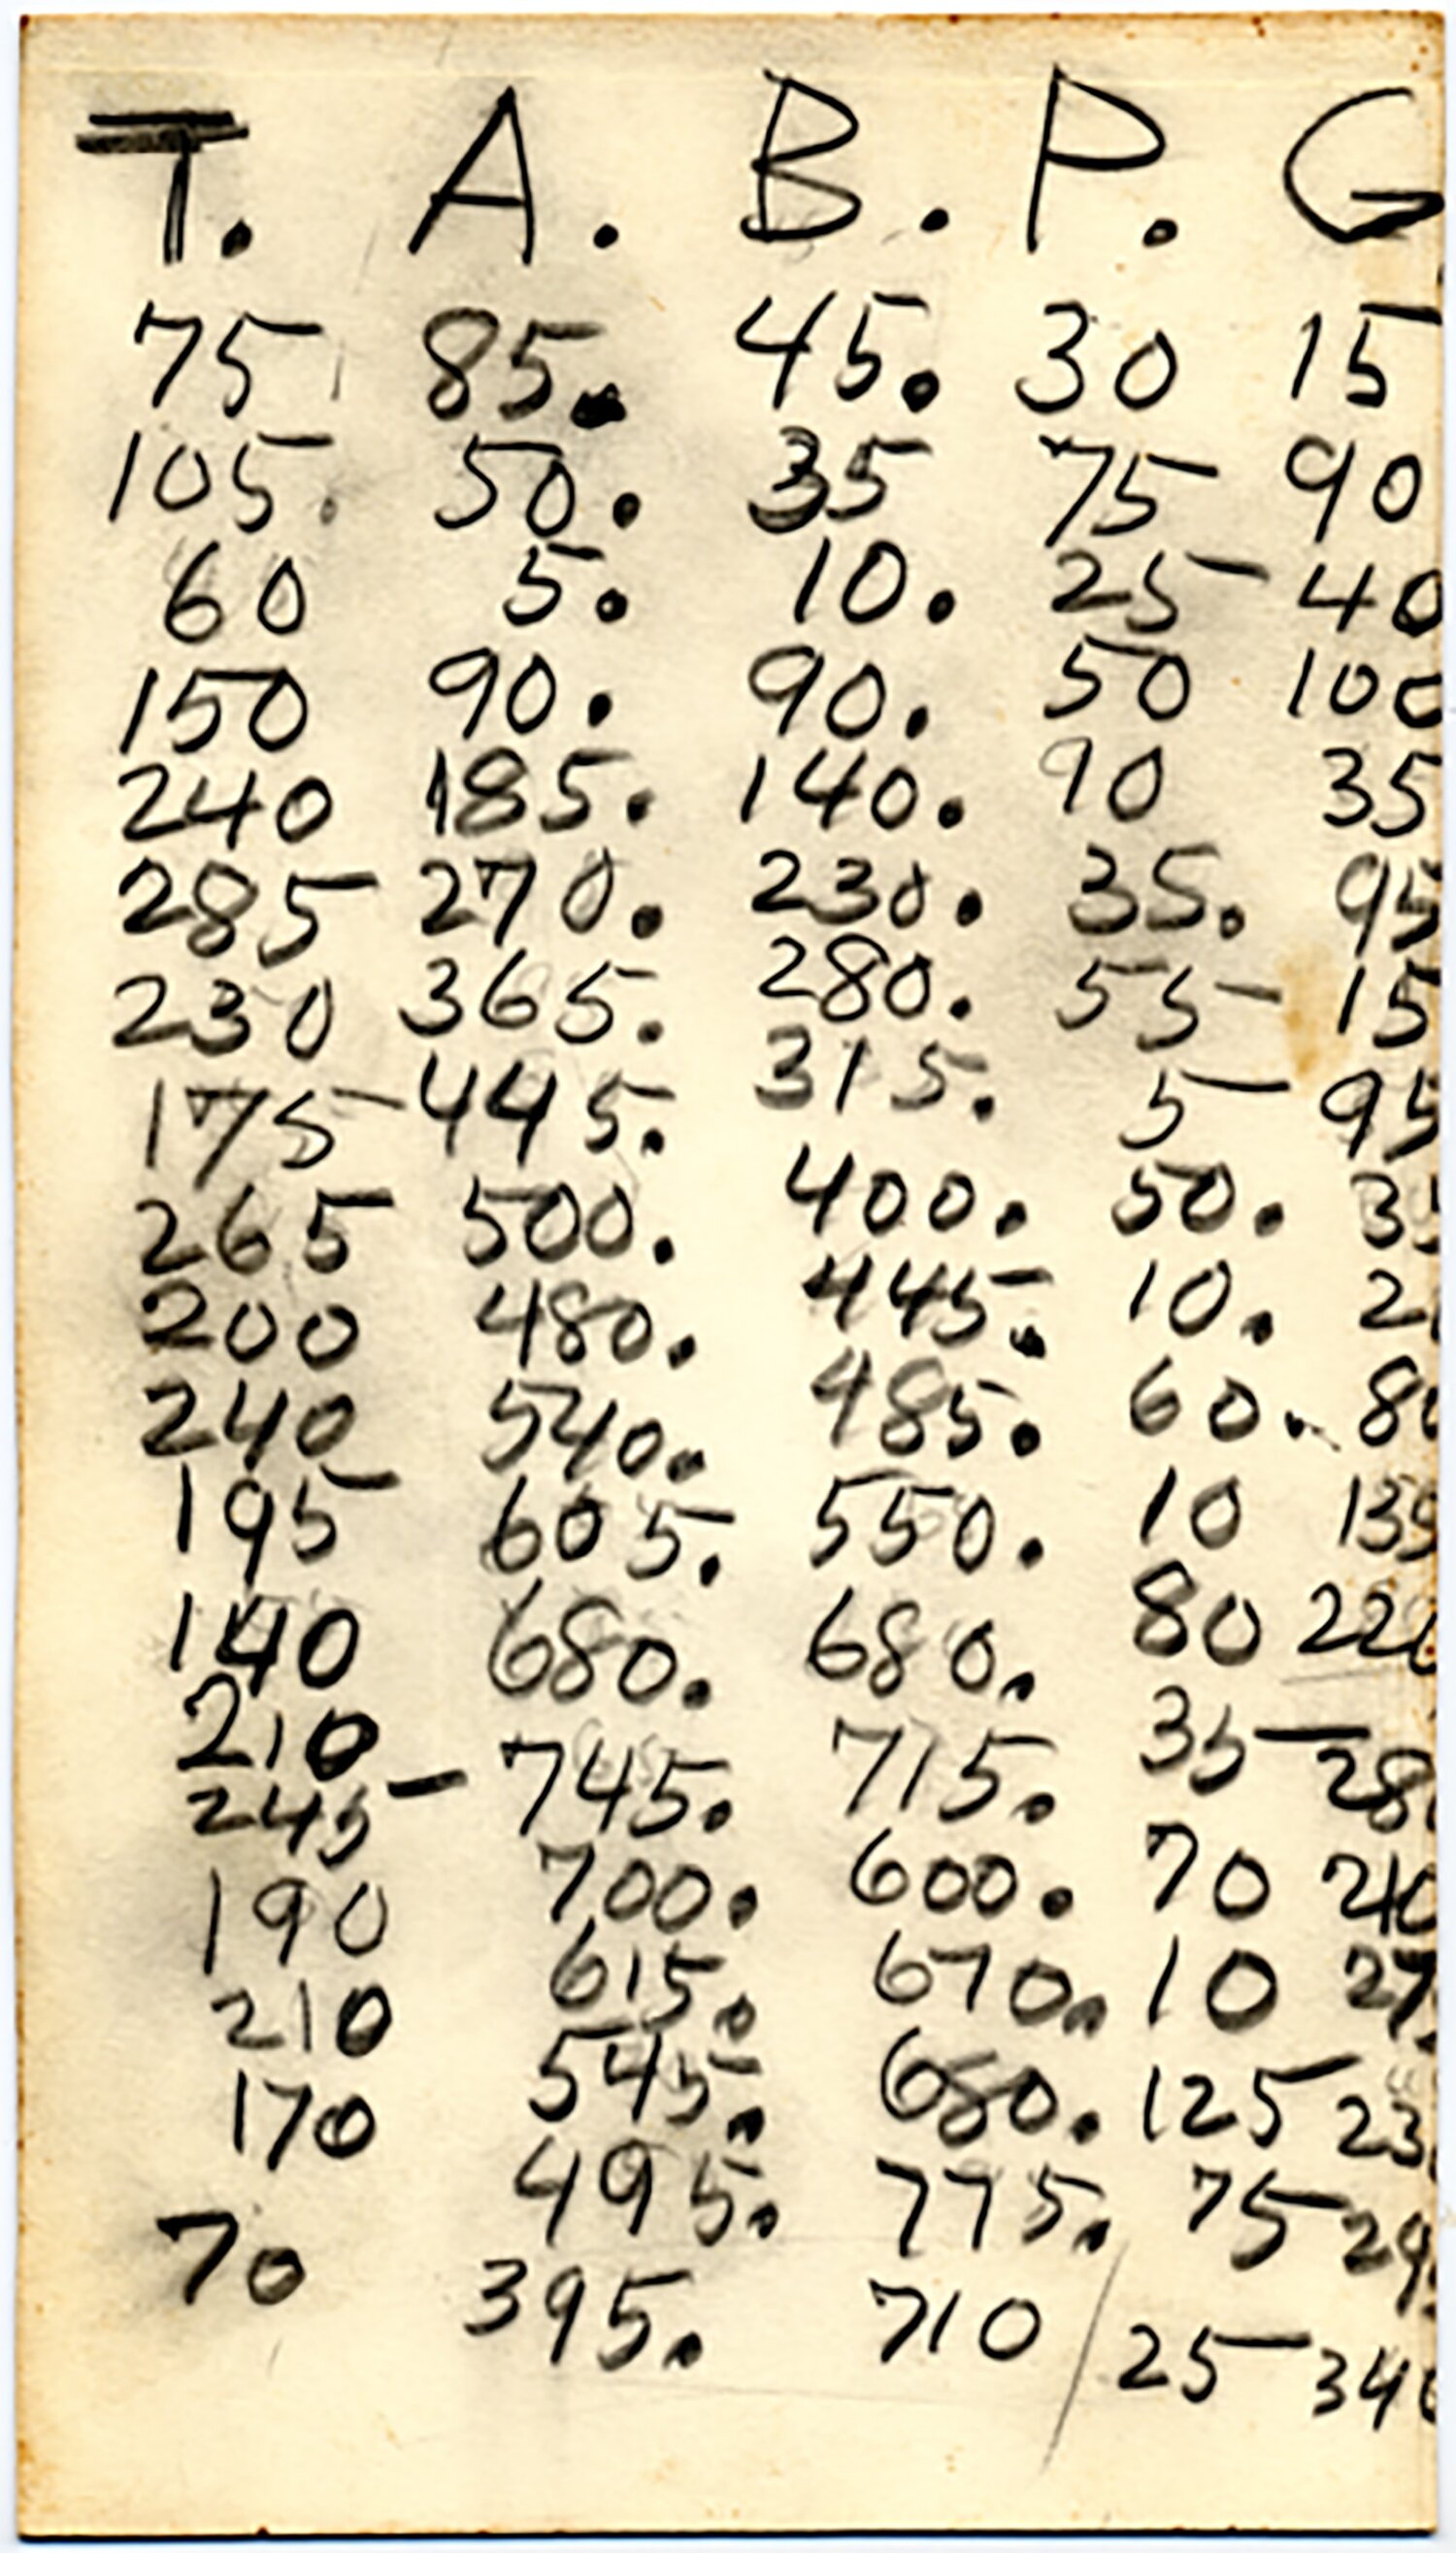 T. A. B. P. G
75 85. 45. 30 15
105. 50. 35 75 90
60 5. 10. 25 40
150 90. 90. 50 100
240 185. 140. 90 35
285 270. 230. 35. 95
230 365. 280. 55 15
175 445. 315. 5 95
265 500. 400. 50.
200 480. 445. 10.
240 540. 485. 60.
195 605. 550. 10 135
140 680. 680. 80 220
210 745. 715. 35
245 700. 600. 70 210
190 615. 670. 10
210 545. 680. 125
170 495. 775. 75
70 395. 710 / 25 340